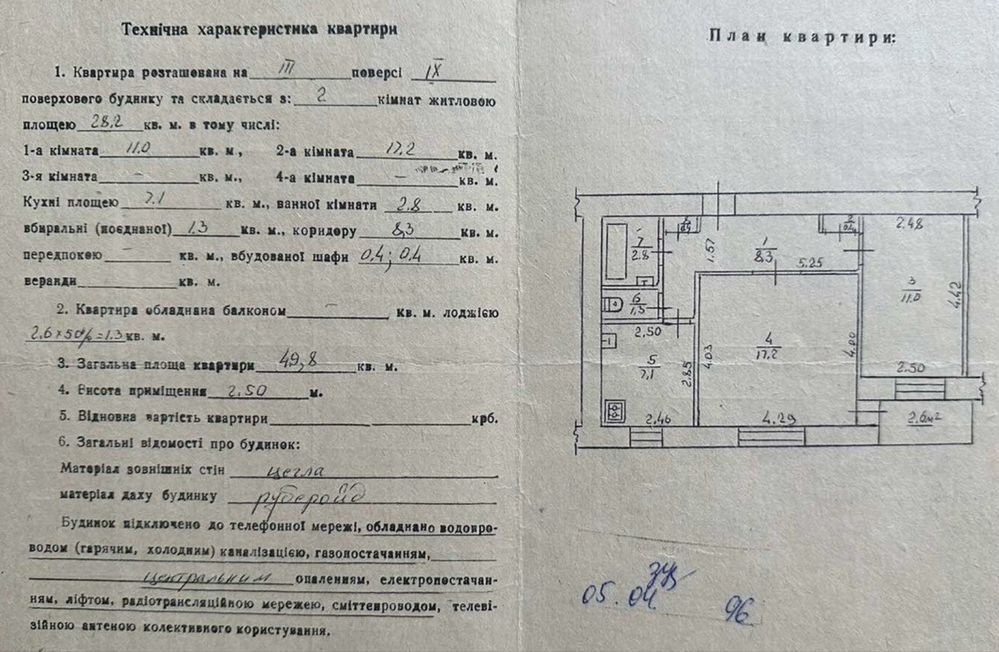 Технічна характеристика квартири
1. Квартира розташована на III поверсі IX
поверхового будинку та складається з: 2 кімнат житловою
площею 28.2 кв. м. в тому числі:
1-а кімната 11.0 кв. м., 2-а кімната 17.2 кв. м.
3-я кімната – кв. м., 4-а кімната – кв. м.
Кухні площею 7.1 кв. м., ванної кімнати 2.8 кв. м.
вбиральні (поєднаної) 1.3 кв. м., коридору 8,3 кв. м.
передпокою кв. м., вбудованої шафи 0.4; 0.4 кв. м.
веранди кв. м.
2. Квартира обладнана балконом – кв. м. лоджією
2.6 x 50% = 1.3 кв. м.
3. Загальна площа квартири 49,8 кв. м.
4. Висота приміщення 2.50 м.
5. Відновна вартість квартири крб.
6. Загальні відомості про будинок:
Матеріал зовнішніх стін цегла
матеріал даху будинку рубероїд
Будинок підключено до телефонної мережі, обладнано водопро-
водом (гарячим, холодним) каналізацією, газопостачанням,
центральним опаленням, електропостачан-
ням, ліфтом, радіотрансляційною мережею, сміттєпроводом, телеві-
зійною антеною колективного користування.
План квартири:
7
2.8
1.57
1
8,3
5.25
2
0.4
2.48
3
11.0
4.42
6
1,3
2,50
5
7,1
2.85
4.03
4
17.2
4.00
2.50
2.46
4.29
2.6м²
05.04 96